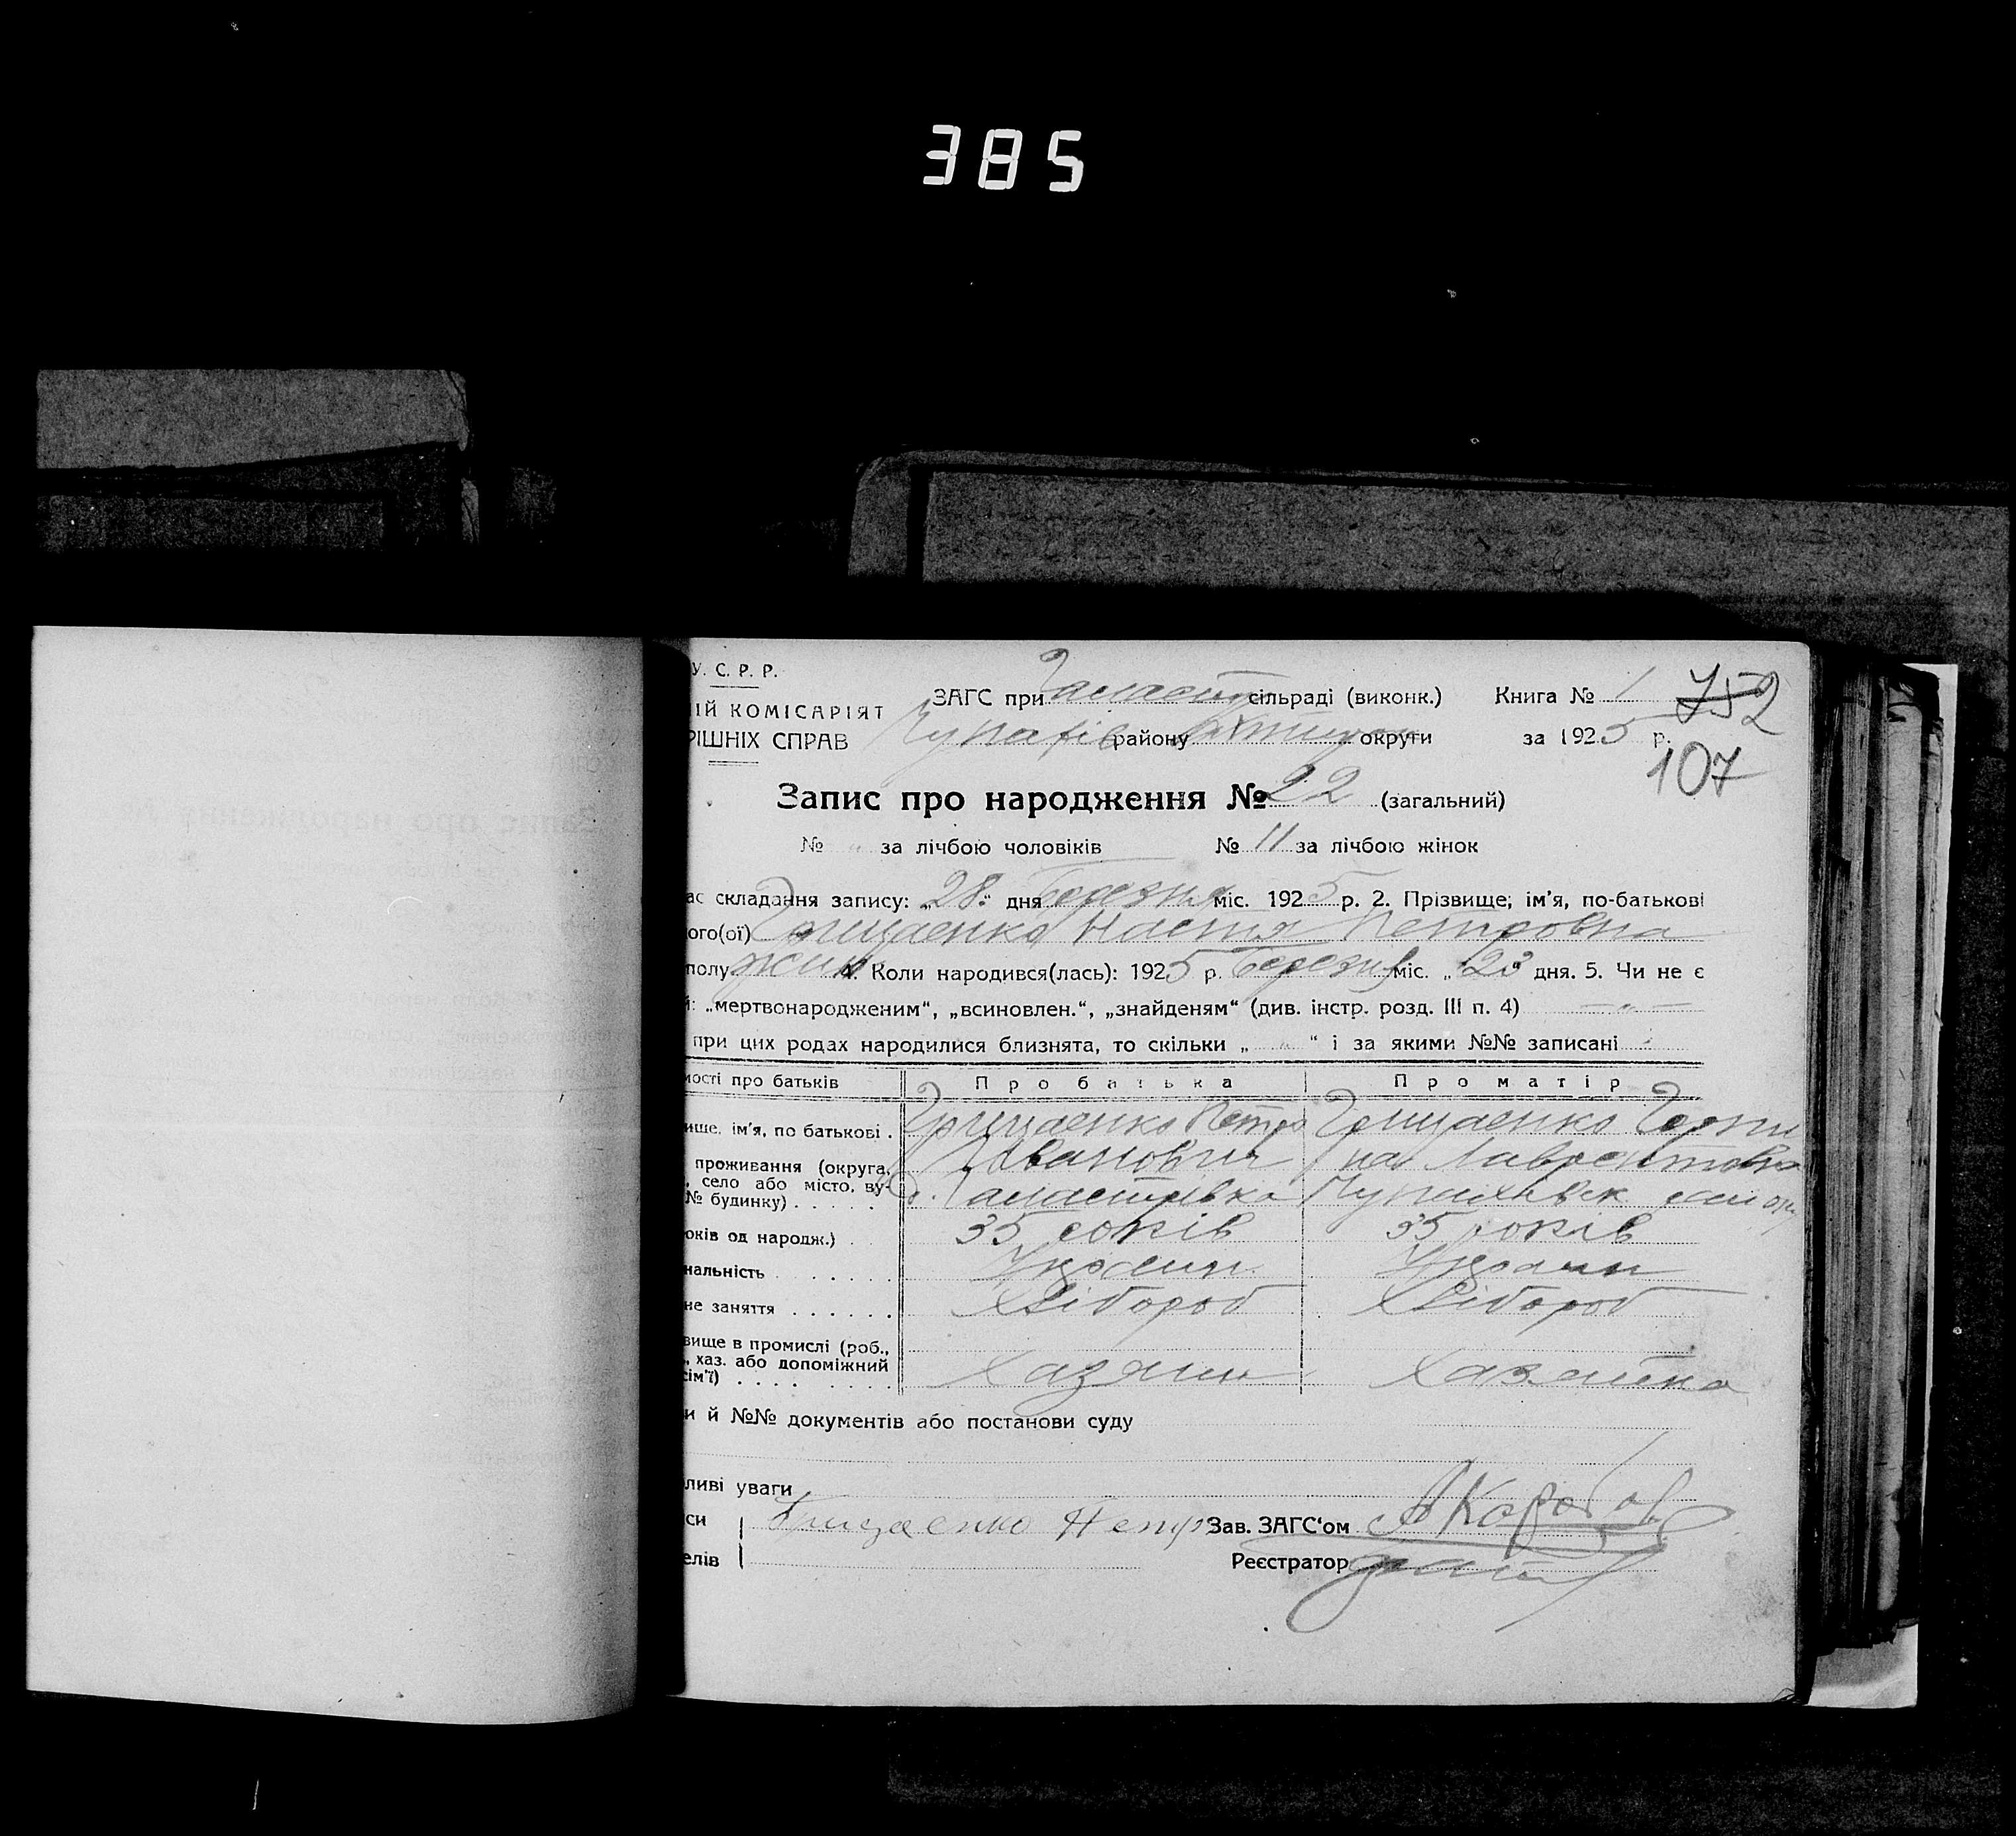 385
У. С. Р. Р.
ІЙ КОМІСАРІЯТ
РІШНІХ СПРАВ
ЗАГС при сільраді (виконк.) Книга № 1 752
району округи за 1925 р.
107
Запис про народження № 22 (загальний)
№ " за лічбою чоловіків № 11 за лічбою жінок
ас складання запису: „28“ дня Березня міс. 1925 р. 2. Прізвище, ім'я, по-батькові
ого(ої) Грищаенко Настя Петровна
полу жін. 4. Коли народився(лась): 1925 р. Березня міс. „23“ дня. 5. Чи не є
й: „мертвонародженим“, „всиновлен.“, „знайденям“ (див. інстр. розд. III п. 4) — „ —
при цих родах народилися близнята, то скільки „ " “ і за якими №№ записані
мості про батьків Про батька Про матір
ище, ім'я, по батькові . Грищаенко Петро Грищаенко Горпи
Іванович на Лаврентовна
проживання (округа,
, село або місто, ву-
№ будинку) . . . . .
оків од народж.) . 35 років 35 років
нальність . . . . . . Україн Україн
не заняття . . . . . . Хлібороб Хлібороб
вище в промислі (роб.,
., хаз. або допоміжний
сім'ї) . . . . . . . . Хазяин Хазяйка
и й №№ документів або постанови суду
ливі уваги
си Грищаенко Петр Зав. ЗАГС'ом
елів Реєстратор